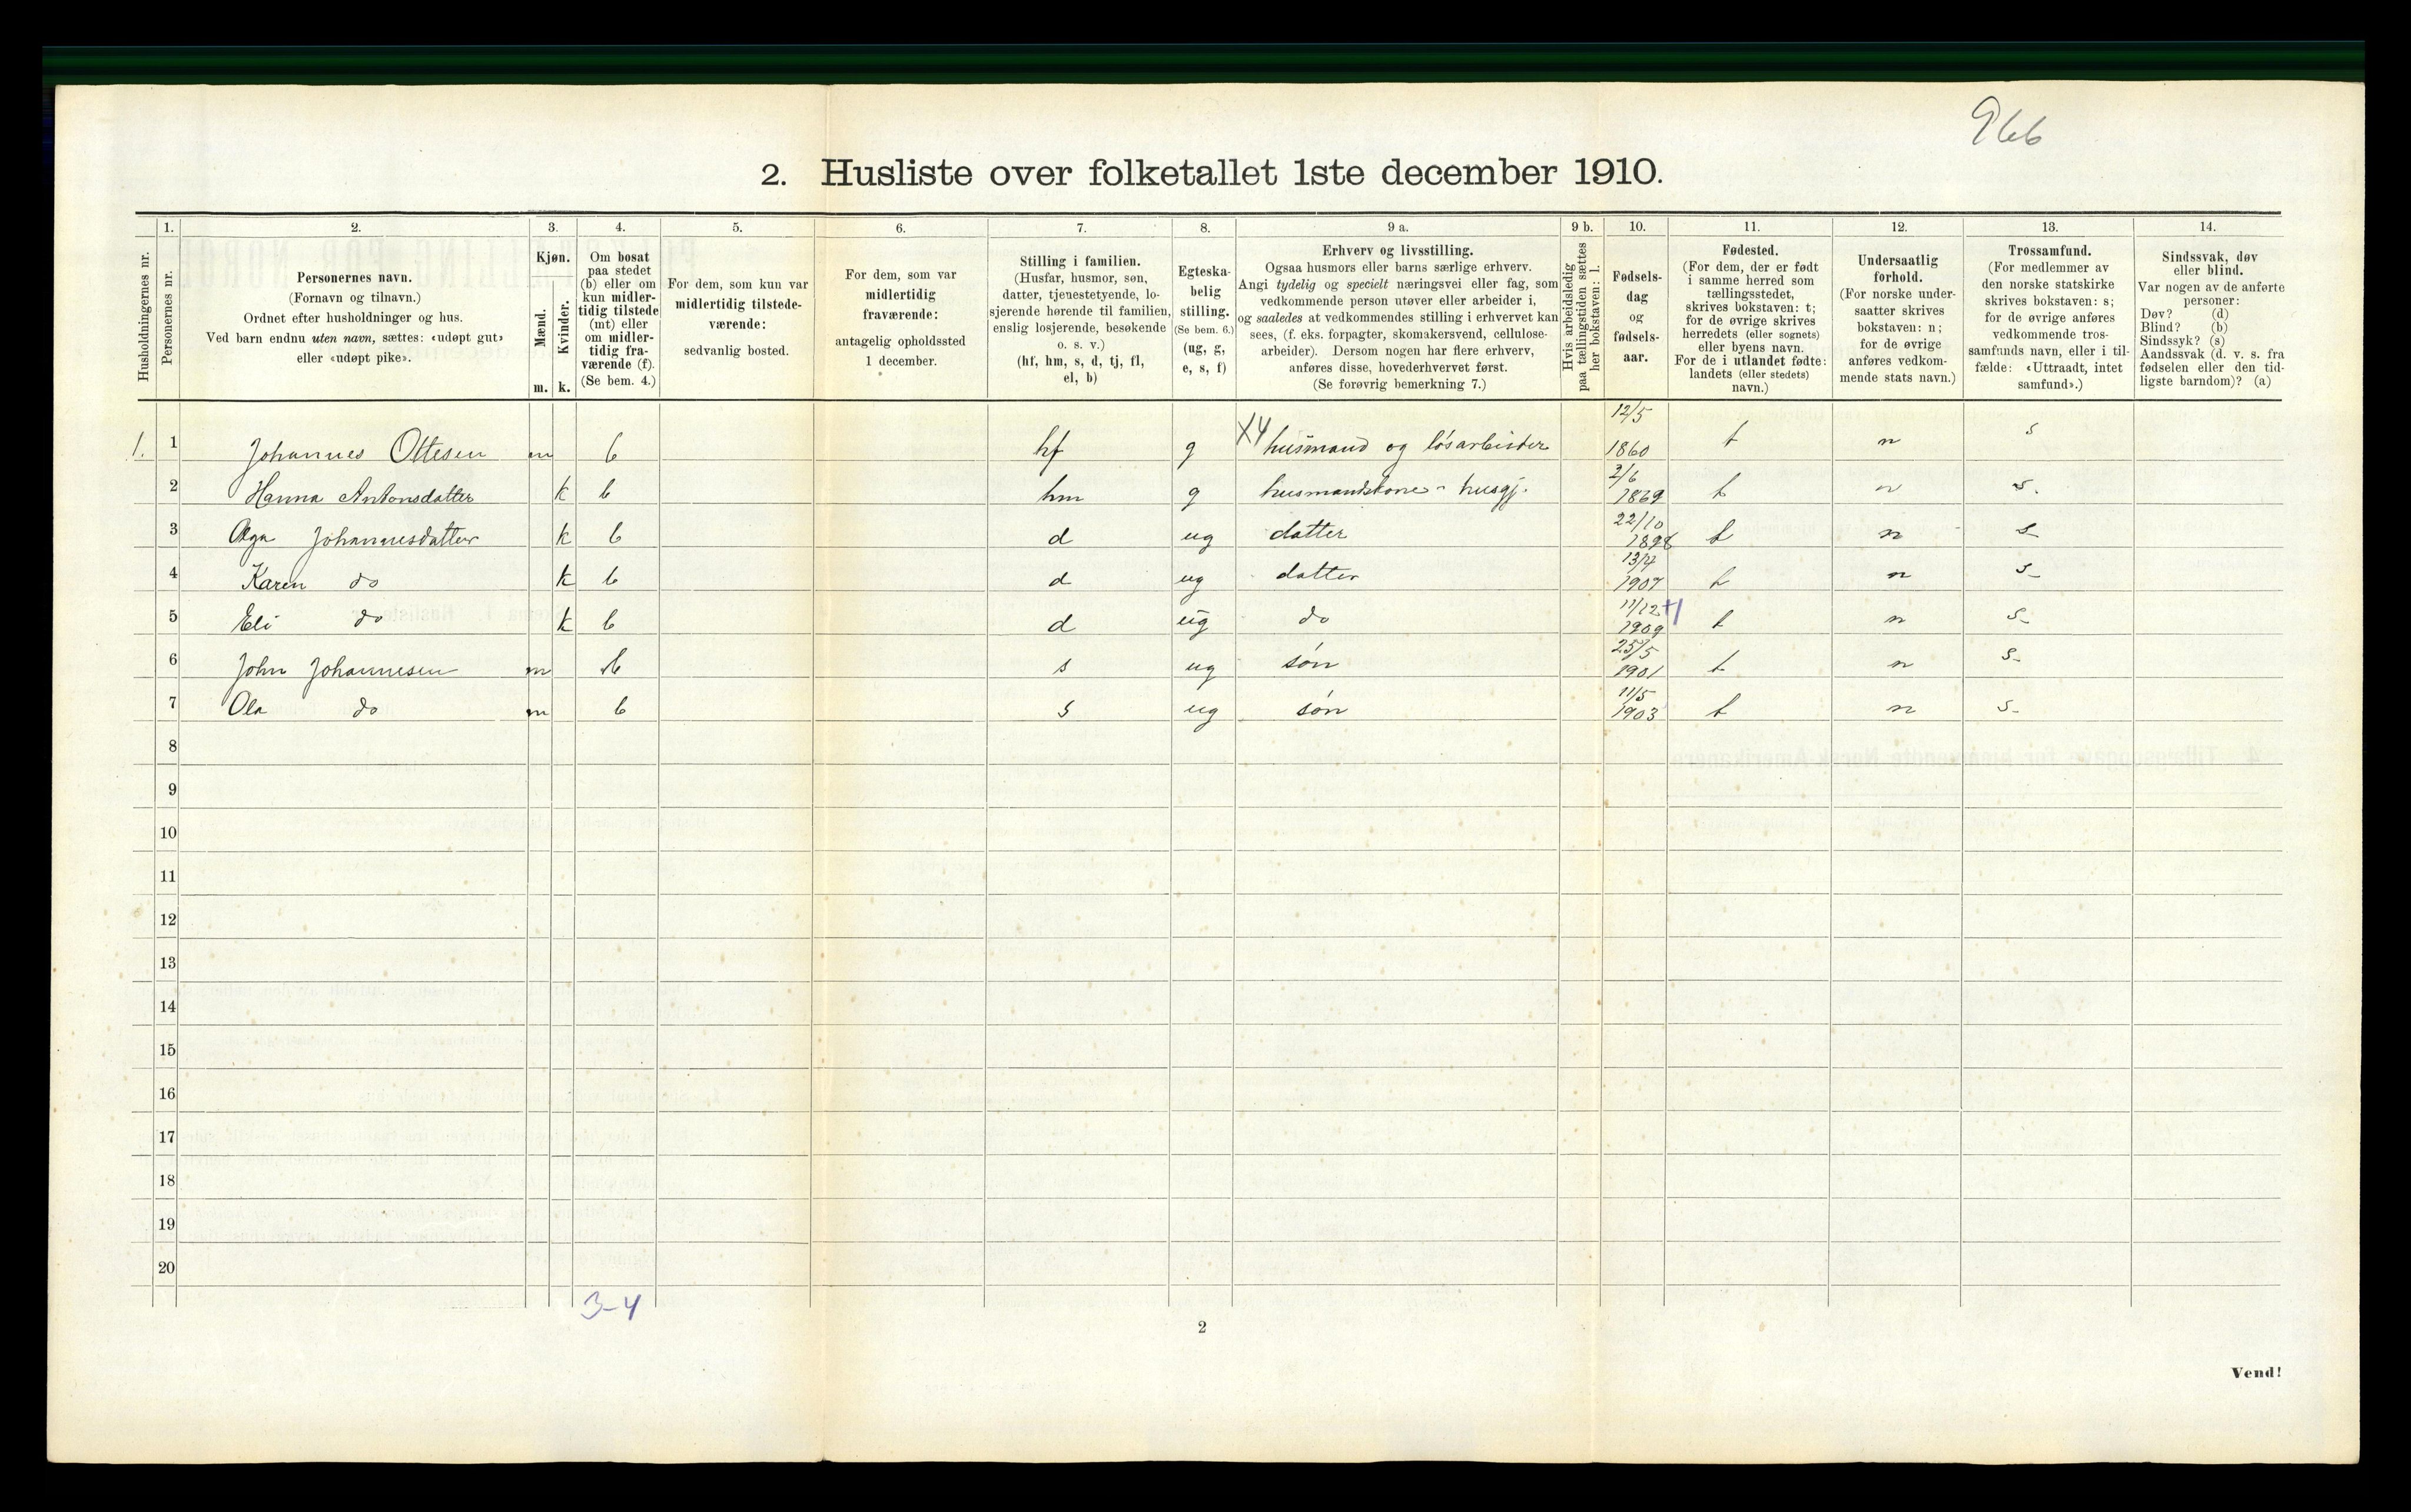 966
2. Husliste over folketallet 1ste december 1910.
1. 2. 3. 4. 5. 6. 7. 8. 9 a. 9 b. 10. 11. 12. 13. 14.
Husholdningernes nr.
Personernes nr.
Personernes navn.
(Fornavn og tilnavn.)
Ordnet efter husholdninger og hus.
Ved barn endnu uten navn, sættes: «udøpt gut»
eller «udøpt pike».
Kjøn.
Mænd.
Kvinder.
m. k.
Om bosat
paa stedet
(b) eller om
kun midler-
tidig tilstede
(mt) eller
om midler-
tidig fra-
værende (f).
(Se bem. 4.)
For dem, som kun var
midlertidig tilstede-
værende:
sedvanlig bosted.
For dem, som var
midlertidig
fraværende:
antagelig opholdssted
1 december.
Stilling i familien.
(Husfar, husmor, søn,
datter, tjenestetyende, lo-
sjerende hørende til familien,
enslig losjerende, besøkende
o. s. v.)
(hf, hm, s, d, tj, fl,
el, b)
Egteska-
belig
stilling.
(Se bem. 6.)
(ug, g,
e, s, f)
Erhverv og livsstilling.
Ogsaa husmors eller barns særlige erhverv.
Angi tydelig og specielt næringsvei eller fag, som
vedkommende person utøver eller arbeider i,
og saaledes at vedkommendes stilling i erhvervet kan
sees, (f. eks. forpagter, skomakersvend, cellulose-
arbeider). Dersom nogen har flere erhverv,
anføres disse, hovederhvervet først.
(Se forøvrig bemerkning 7.)
Hvis arbeidsledig
paa tællingstiden sættes
her bokstaven: l.
Fødsels-
dag
og
fødsels-
aar.
Fødested.
(For dem, der er født
i samme herred som
tællingsstedet,
skrives bokstaven: t;
for de øvrige skrives
herredets (eller sognets)
eller byens navn.
For de i utlandet fødte:
landets (eller stedets)
navn.)
Undersaatlig
forhold.
(For norske under-
saatter skrives
bokstaven: n;
for de øvrige
anføres vedkom-
mende stats navn.)
Trossamfund.
(For medlemmer av
den norske statskirke
skrives bokstaven: s;
for de øvrige anføres
vedkommende tros-
samfunds navn, eller i til-
fælde: «Uttraadt, intet
samfund».)
Sindssvak, døv
eller blind.
Var nogen av de anførte
personer:
Døv? (d)
Blind? (b)
Sindssyk? (s)
Aandssvak (d. v. s. fra
fødselen eller den tid-
ligste barndom)? (a)
1. 1 Johannes Ottesen m b hf g X4 husmand og løsarbeider 12/5 1860 t n s
2 Hanna Antonsdatter k b hm g husmandskone - husgj. 2/6 1869 t n s.
3 Olga Johannesdatter k b d ug datter 22/10 1898 t n s-
4 Karen do k b d ug datter 13/4 1907 t n s-
5 Eli do k b d ug do 11/12 1909 t n s-
6 John Johannesen m b s ug søn 25/5 1901 t n s-
7 Ola do m b s ug søn 11/5 1903 t n s-
8
9
10
11
12
13
14
15
16
17
18
19
20
3-4
2
Vend!